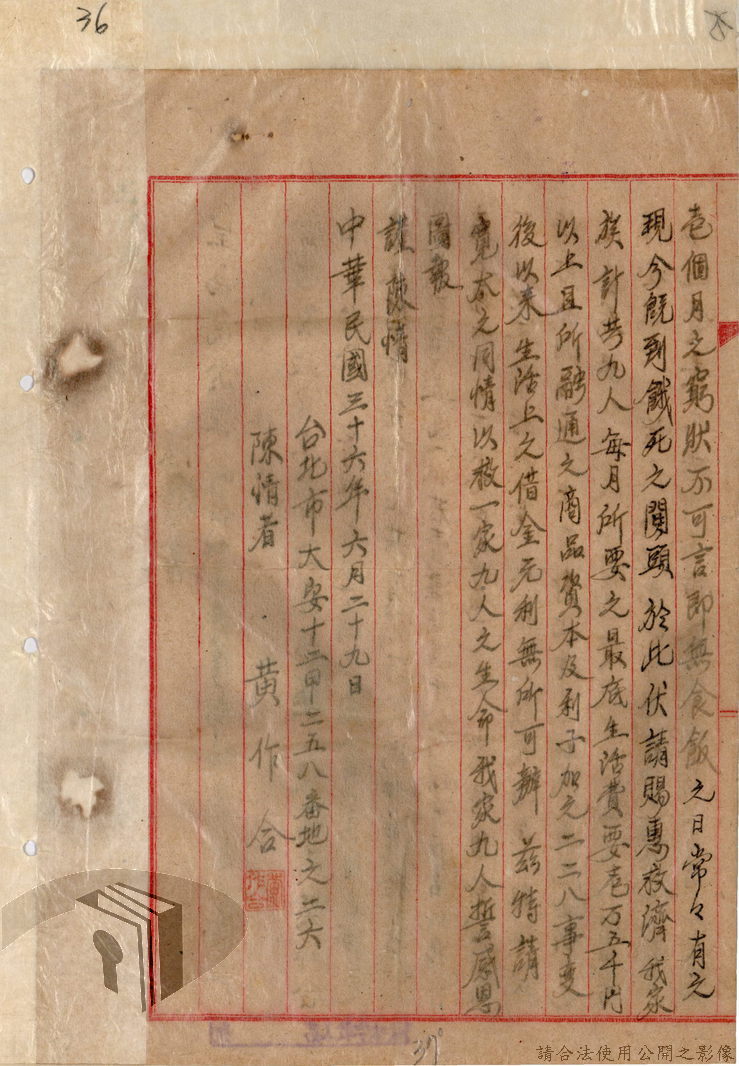 36
壱個月之窮狀不可言即無食飯之日常々有之
現今既到餓死之関頭於此伏請賜惠救濟我家
族計共九人每月所要之最底生活費要壱万五千円
以上且所融通之商品資本及利子加之二二八事変
後以来生活上之借金元利無所可辦茲特請
寬大之同情以救一家九人之生命我家九人誓感恩
圖報
謹陳情
中華民國三十六年六月二十九日
台北市大安十二甲二五八番地之二六
陳情者 黃作合
請合法使用公開之影像